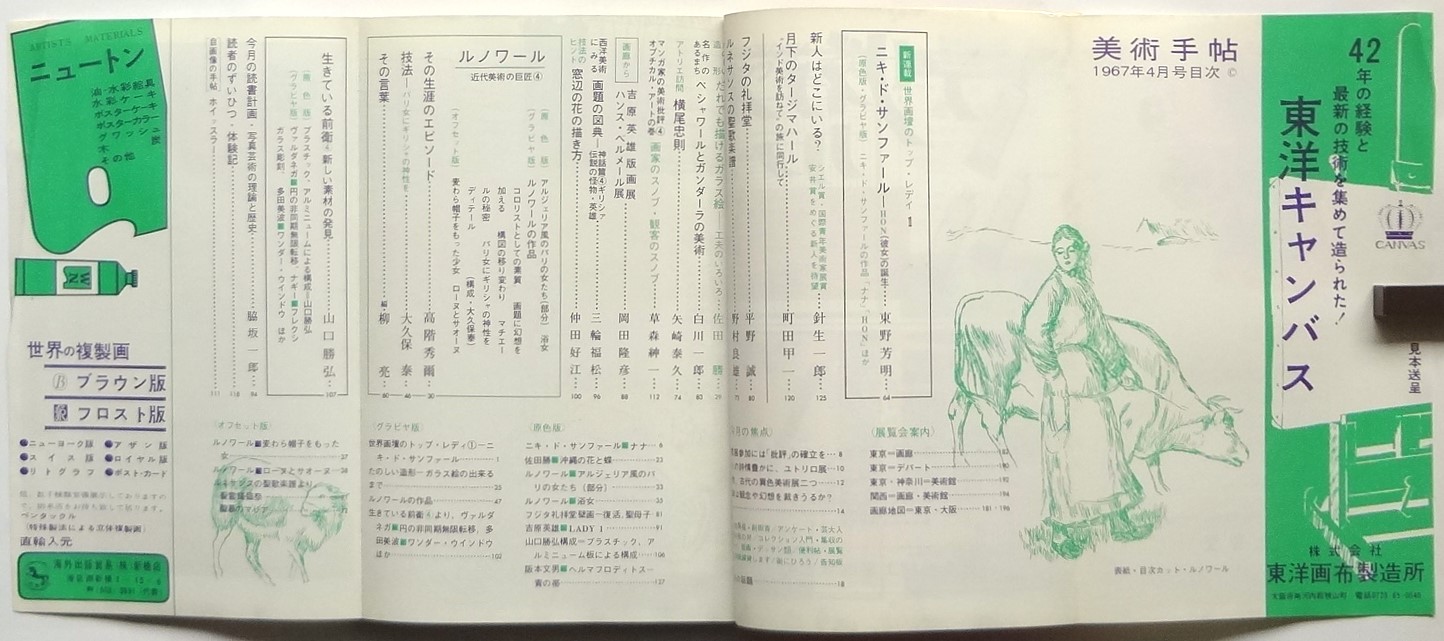 42年の経験と
最新の技術を集めて造られた!
東洋キャンバス
CANVAS
見本送呈
株式会社
東洋画布製造所
美術手帖
1967年4月号目次 ©
新連載 世界画壇のトップ・レディ 1
ニキ・ド・サンファール—HON(彼女)の誕生 東野芳明 64
(原色版・グラビヤ版) ニキ・ド・サンファールの作品 ナナ/「HON」ほか
新人はどこにいる? 針生一郎 125
シェル賞・国際青年美術家展賞
安井賞をめぐる新人を待望
月下のタージマハール 町田甲一 120
“インド美術を訪ねて”の旅に同行して
フジタの礼拝堂 平野 誠 80
ルネサンスの聖歌楽譜 野村良雄 71
造形 だれでも描けるガラス絵—工夫のいろいろ 佐田 勝 29
名作のあるまち ペシャワールとガンダーラの美術 白川一郎 83
アトリエ訪問 横尾忠則 矢崎泰久 74
マンガ家の美術批評④ 画家のスノブ・観客のスノブ 草森紳一 112
オプチカル・アートの巻
画廊から 吉原英雄版画展
ハンス・ベルメール展 岡田隆彦 88
西洋美術にみる 画題の図典—神話篇④ギリシァ伝説の怪物・英雄 三輪福松 96
技法のヒント 窓辺の花の描き方 仲田好江 100
ルノワール
近代美術の巨匠④
(原色版) アルジェリア風のパリの女たち(部分) 浴女
(グラビヤ版) ルノワールの作品
コロリストとしての素質 画題に幻想を
加える 構図の移り変わり マチエー
ルの秘密 パリ女にギリシャの神性を
ディテール (構成・大久保泰)
(オフセット版) 麦わら帽子をもった少女 ローヌとサオーヌ
その生涯のエピソード 高階秀爾 30
技法—パリ女にギリシャの神性を 大久保 泰 48
その言葉 編 柳 亮 60
生きている前衛④ 新しい素材の発見 山口勝弘 107
(原色版) プラスチック・アルミニュームによる構成—山口勝弘
(グラビヤ版) ヴァルダネガ■円の非同期無限転移 ナギー■フレクシ
ガラス彫刻 多田美波■ワンダー・ウインドウ ほか
今月の読書計画・写真芸術の理論と歴史 脇坂一郎 94
読者のずいひつ・体験記 118
自画像の手帖 ホイッスラー 111
(展覧会案内)
東京=画廊 82
東京=デパート 190
東京・神奈川=美術館 192
関西=画廊・美術館 194
画廊地図=東京・大阪 181・196
月の焦点)
参加には「批評」の確立を 8
詩情豊かに、ユトリロ展 10
古代の異色美術展二つ 12
は観念や幻想を裁きうるか?
14
18
表紙・目次カット・ルノワール
(原色版)
ニキ・ド・サンファール■ナナ 6
佐田勝■沖縄の花と蝶 23
ルノワール■アルジェリア風のパ
リの女たち(部分) 33
ルノワール■浴女 35
フジタ礼拝堂壁画—復活、聖母子 81
吉原英雄■LADY 1 91
山口勝弘構成=プラスチック、ア
ルミニューム板による構成 106
阪本文男■ヘルマフロディトス—
青の蔭 127
(グラビヤ版)
世界画壇のトップ・レディ①—ニ
キ・ド・サンファール 1
たのしい造形—ガラス絵の出来る
まで 25
ルノワールの作品 47
生きている前衛④より、ヴァルダ
ネガ■円の非同期無限転移、多
田美波■ワンダー・ウインドウ
ほか 102
(オフセット版)
ルノワール■麦わら帽子をもった
女 37
ルノワール■ローヌとサオーヌ 38
ルネサンスの聖歌楽譜より
聖霊降臨祭
聖夜のマジア
ARTISTS MATERIALS
ニュートン
油・水彩絵具
水彩ケーキ
ポスターケーキ
ポスターカラー
グワッシュ
木炭
その他
WN
世界の複製画
ブラウン版
フロスト版
●ニューヨーク版 ●アザン版
●スイス版 ●ロイヤル版
●リトグラフ ●ポスト・カード
ペンタックル
(特殊製法による立体複製画)
直輸入元
海外出版貿易(株)新橋店